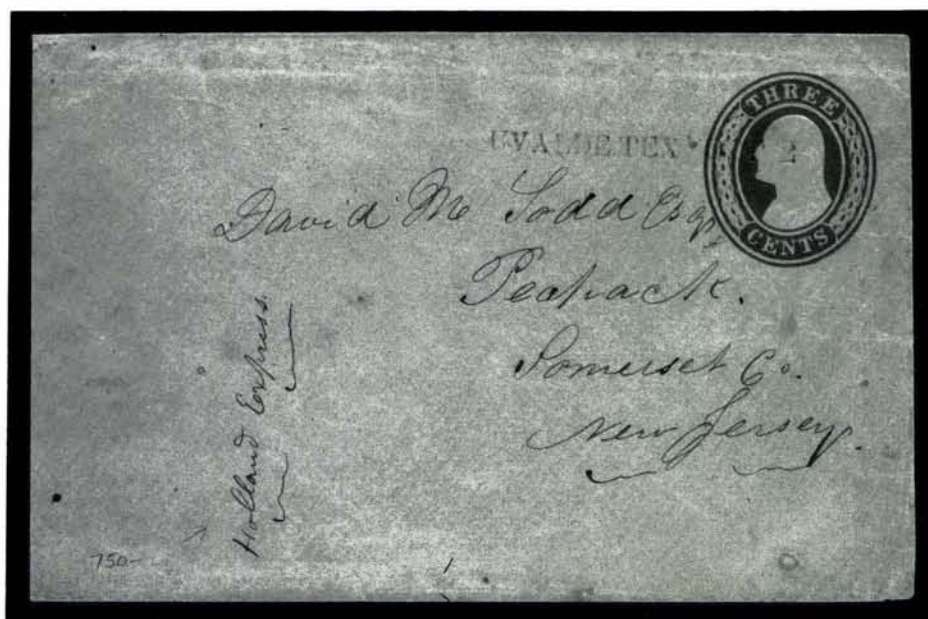 THREE
CENTS
UVALDE TEX
David M Todd Esqr
Peapack.
Somerset Co.
New Jersey.
Holland Express.
750-